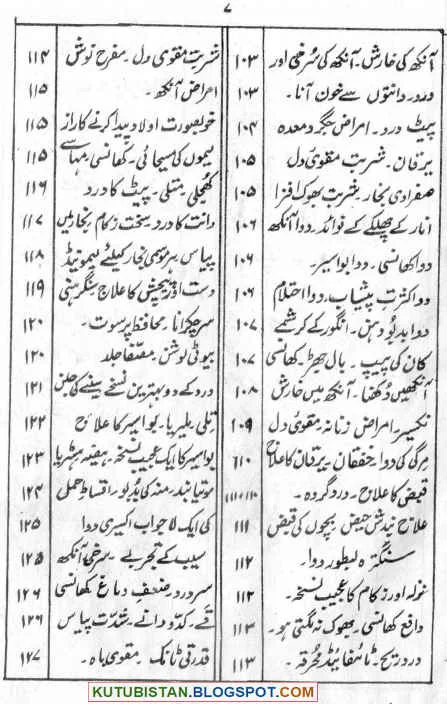 ۷
آنکھ کی خارش۔ آنکھ کی سُرخی اور ۱۰۳
درد۔ دانتوں سے خون آنا۔ ۱۰۳
پیٹ درد۔ امراض جگر و معدہ ۱۰۴
یرقان۔ شربت مقوی دل ۱۰۵
صفراوی بخار۔ شربت بھوک فزا ۱۰۵
انار کے چھلکے کے فوائد۔ دوا آنکھ ۱۰۶
دوا کھانسی۔ دوا بواسیر۔ ۱۰۶
دوا کثرتِ پیشاب۔ دوا احتلام ۱۰۶
دوا بدبُو دہن۔ انگور کے کرشمے ۱۰۷
کان کی پیپ۔ بال جھڑ۔ کھانسی ۱۰۷
آنکھیں دُکھنا۔ آنکھ میں خارش ۱۰۸
نکسیر۔ امراض زنانہ۔ مقوی دل ۱۰۹
مرگی کی دوا۔ خفقان۔ یرقان کا علاج ۱۱۰
قبض کا علاج۔ درد گردہ۔ ۱۱۰،۱۱۱
علاج بندش حیض۔ بچوں کی قبض ۱۱۱
سنگترہ بطور دوا۔ ۱۱۲
نزلہ اور زکام کا عجیب نسخہ۔ ۱۱۲
دافع کھانسی۔ بھوک نہ لگتی ہو۔ ۱۱۳
درد ریح۔ ٹائیفائیڈ محرقہ۔ ۱۱۳
شربت مقوی دل۔ مفرح نوش ۱۱۴
امراض آنکھ۔ ۱۱۵
خوبصورت اولاد پیدا کرنے کا راز ۱۱۵
لیموں کی مسیحائی۔ کھانسی مہاسے ۱۱۵
کھجلی۔ متلی۔ پیٹ کا درد ۱۱۶
دانت کا درد سخت زکام بخار میں ۱۱۷
پیاس ہر موسمی بخار کیلئے لیمونیڈ ۱۱۸
دست اور پیچش کا علاج سنگرہنی ۱۱۹
سر چکرانا۔ محافظ پرسوت۔ ۱۲۰
بیوٹی لوشن۔ مصفّا جلد ۱۲۰
درد کے دو بہترین نسخے سینے کی جلن ۱۲۱
تلی۔ ملیریا۔ بواسیر کا علاج ۱۲۲
بواسیر کا ایک عجیب نسخہ۔ ہیضہ ہسٹریا ۱۲۳
موتیا بند۔ منہ کی بدبُو۔ اقساط حمل ۱۲۴
کی ایک لاجواب اکسیری دوا ۱۲۵
سیب کے تجربے۔ سرخی آنکھ ۱۲۵
سر درد۔ ضعف دماغ کھانسی ۱۲۶
قے۔ کدو دانے۔ شدّت پیاس ۱۲۶
قدرتی ٹانک۔ مقوی باہ۔ ۱۲۷
KUTUBISTAN.BLOGSPOT.COM